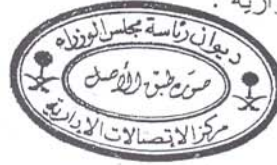 دارية .
ديوان رئاسة مجلس الوزراء
صورة طبق الأصل
مركز الاتصالات الادارية